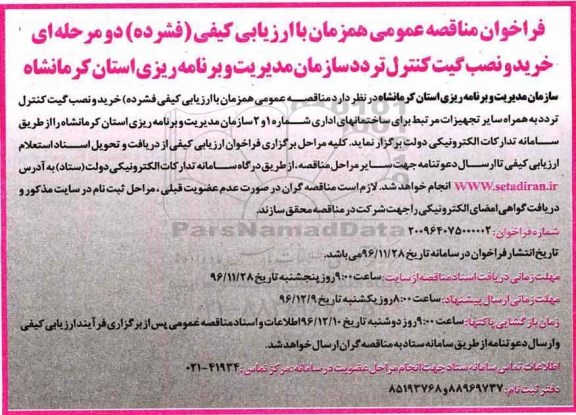 فراخوان مناقصه عمومی همزمان با ارزیابی کیفی (فشرده) دو مرحله ای
خرید و نصب گیت کنترل تردد سازمان مدیریت و برنامه ریزی استان کرمانشاه
سازمان مدیریت و برنامه ریزی استان کرمانشاه در نظر دارد مناقصه عمومی همزمان با ارزیابی کیفی فشرده) خرید و نصب گیت کنترل
تردد به همراه سایر تجهیزات مرتبط برای ساختمانهای اداری شماره ۱ و ۲ سازمان مدیریت و برنامه ریزی استان کرمانشاه را از طریق
سامانه تدارکات الکترونیکی دولت برگزار نماید. کلیه مراحل برگزاری فراخوان ارزیابی کیفی از دریافت و تحویل اسناد استعلام
ارزیابی کیفی تا ارسال دعوتنامه جهت سایر مراحل مناقصه، از طریق درگاه سامانه تدارکات الکترونیکی دولت (ستاد) به آدرس
WWW.setadiran.ir انجام خواهد شد. لازم است مناقصه گران در صورت عدم عضویت قبلی، مراحل ثبت نام در سایت مذکور و
دریافت گواهی امضای الکترونیکی را جهت شرکت در مناقصه محقق سازند.
شماره فراخوان: ۲۰۰۹۶۴۰۷۵۰۰۰۰۰۲
تاریخ انتشار فراخوان در سامانه تاریخ ۹۶/۱۱/۲۸ می باشد.
مهلت زمانی دریافت اسناد مناقصه از سایت: ساعت ۹:۰۰ روز پنجشنبه تاریخ ۹۶/۱۱/۲۸
مهلت زمانی ارسال پیشنهاد: ساعت ۸:۰۰ روز یکشنبه تاریخ ۹۶/۱۲/۹
زمان بازگشایی پاکتها: ساعت ۹:۰۰ روز دوشنبه تاریخ ۹۶/۱۲/۱۰ اطلاعات و اسناد مناقصه عمومی پس از برگزاری فرآیند ارزیابی کیفی
و ارسال دعوتنامه از طریق سامانه ستاد به مناقصه گران ارسال خواهد شد.
اطلاعات تماس سامانه ستاد جهت انجام مراحل عضویت در سامانه: مرکز تماس: ۴۱۹۳۴-۰۲۱
دفتر ثبت نام: ۸۸۹۶۹۷۳۷ و ۸۵۱۹۳۷۶۸
ParsNamadData